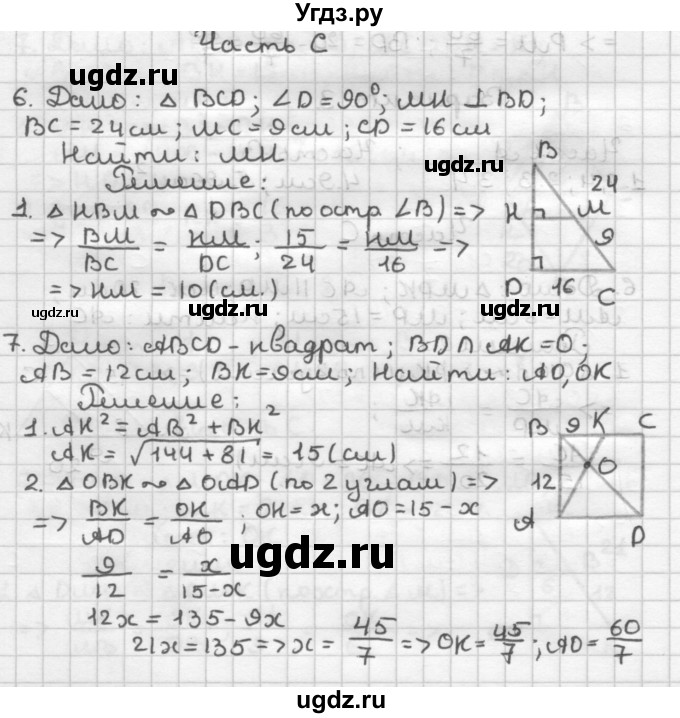 Угдз.ру
Часть С
ugdz.ru
ugdz.ru
6. Дано: △ BCD; ∠D = 90°; MH ⊥ BD;
BC = 24 см; MC = 9 см; CD = 16 см
Найти: MH
Решение:
1. △ HBM ~ △ DBC (по остр ∠B) =>
=> BM/BC = HM/DC; 15/24 = HM/16 =>
=> HM = 10 (см.)
B
24
H
M
9
D
16
C
ugdz.ru
ugdz.ru
ugdz.ru
7. Дано: ABCD - квадрат; BD ∩ AK = O;
AB = 12 см; BK = 9 см; Найти: AO, OK
Решение:
1. AK² = AB² + BK²
AK = √144 + 81 = 15 (см)
2. △ OBK ~ △ OAD (по 2 углам) =>
=> BK/AD = OK/AO; OK = x; AO = 15 - x
9/12 = x/15-x
12x = 135 - 9x
21x = 135 => x = 45/7 => OK = 45/7; AO = 60/7
B
9
K
C
O
12
A
D
ugdz.ru
ugdz.ru
ugdz.ru
ugdz.ru
ugdz.ru